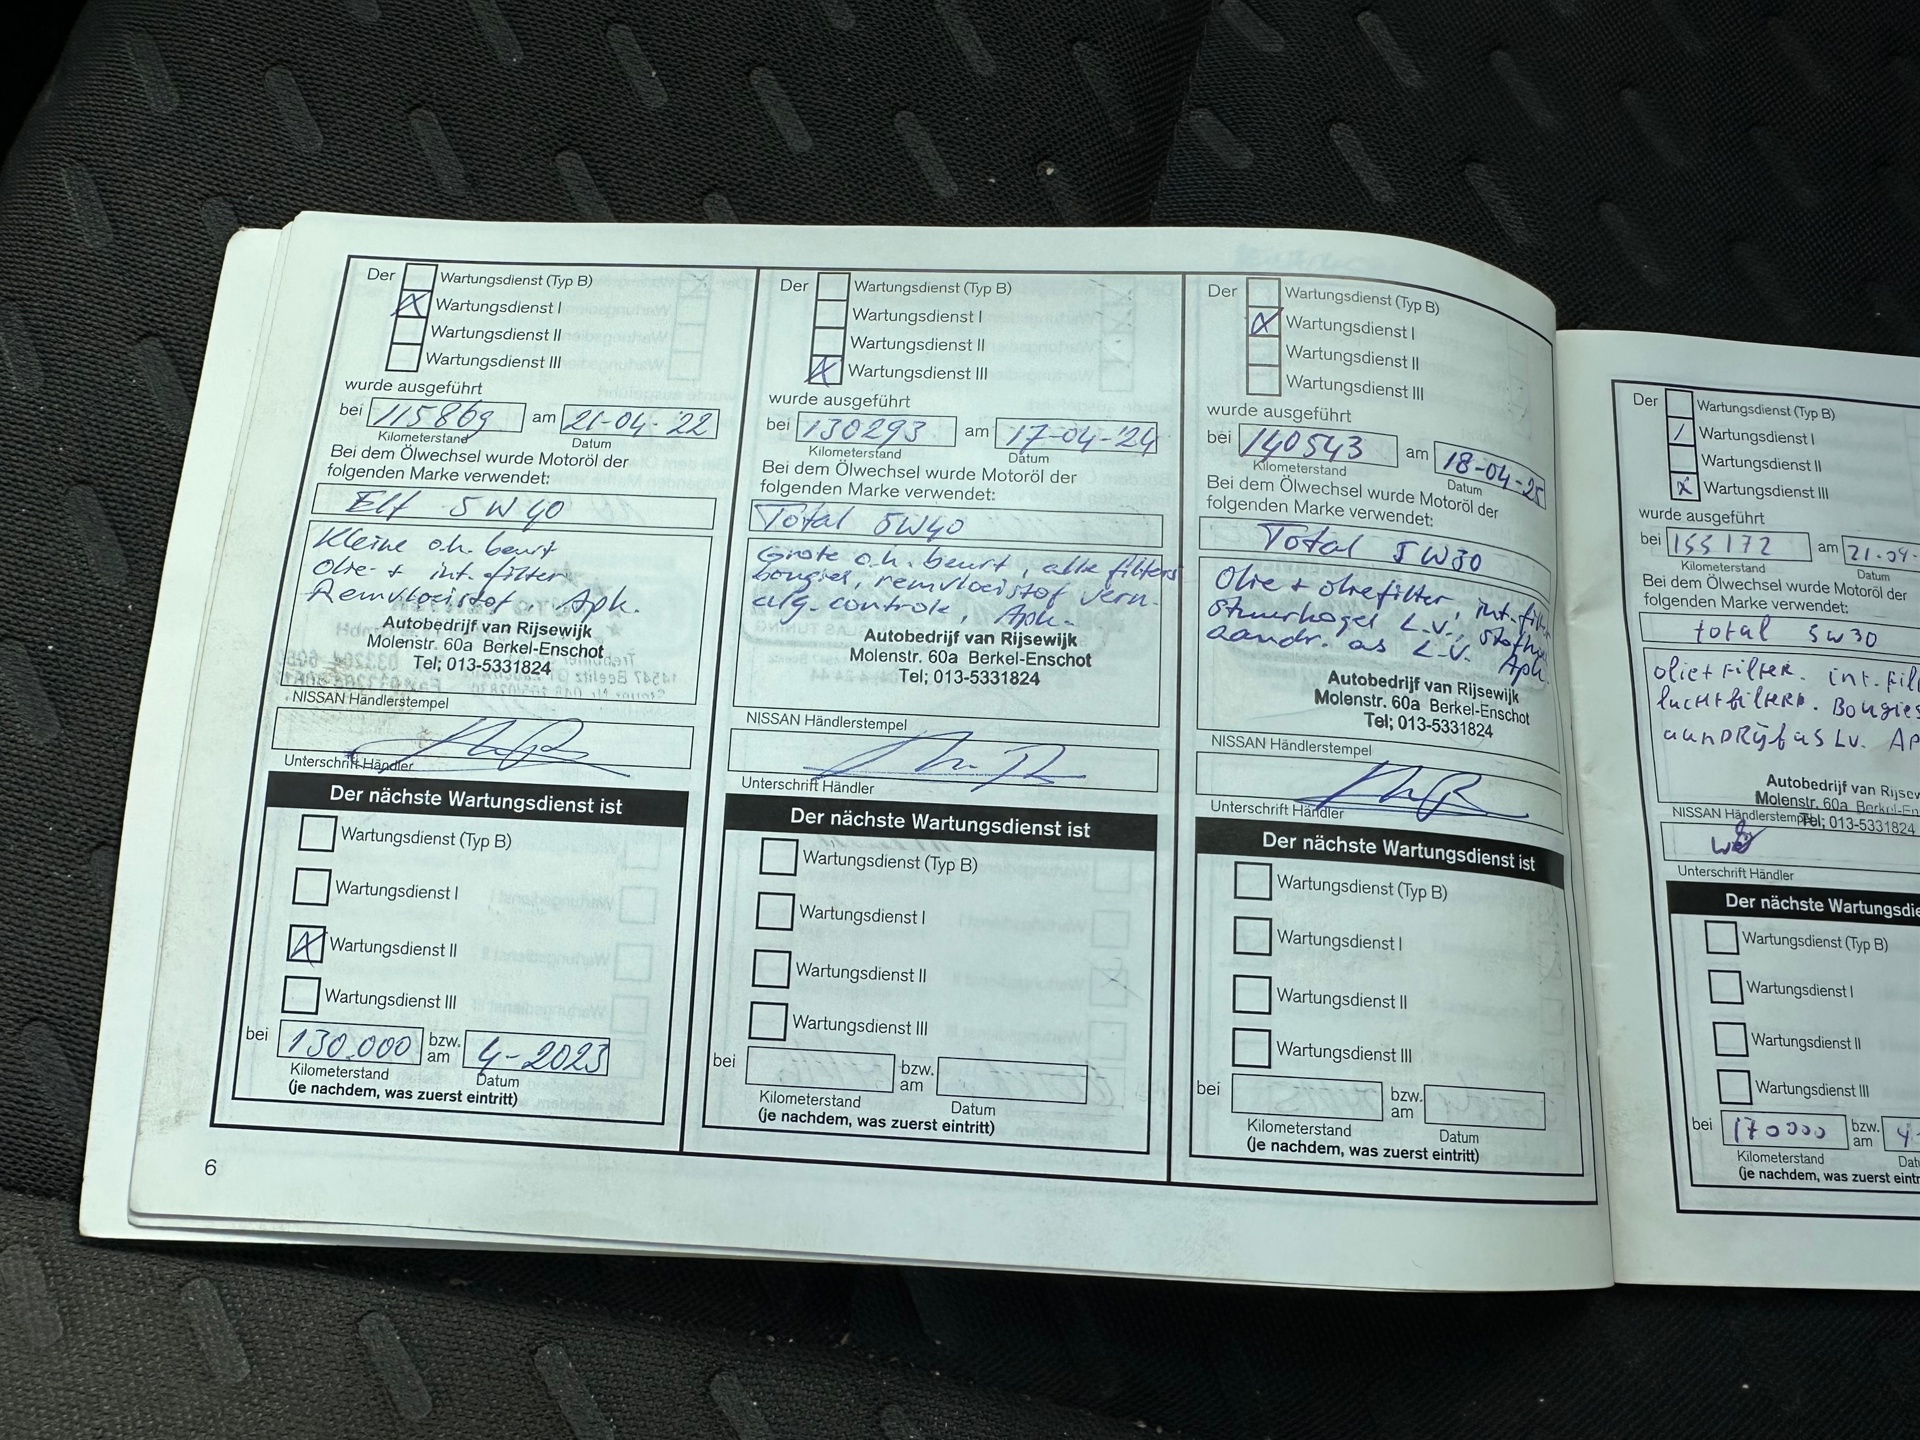 Der Wartungsdienst (Typ B)
Wartungsdienst I
Wartungsdienst II
Wartungsdienst III
wurde ausgeführt
bei 115869 am 21-04-'22
Kilometerstand Datum
Bei dem Ölwechsel wurde Motoröl der
folgenden Marke verwendet:
Elf 5W40
Kleine o.h. beurt
olie + int. filter
Remvloeistof, Apk.
Autobedrijf van Rijsewijk
Molenstr. 60a Berkel-Enschot
Tel; 013-5331824
NISSAN Händlerstempel
Unterschrift Händler
Der nächste Wartungsdienst ist
Wartungsdienst (Typ B)
Wartungsdienst I
Wartungsdienst II
Wartungsdienst III
bei 130.000 bzw. am 4-2023
Kilometerstand Datum
(je nachdem, was zuerst eintritt)
6
Der Wartungsdienst (Typ B)
Wartungsdienst I
Wartungsdienst II
Wartungsdienst III
wurde ausgeführt
bei 130293 am 17-04-'24
Kilometerstand Datum
Bei dem Ölwechsel wurde Motoröl der
folgenden Marke verwendet:
Total 5W40
Grote o.h. beurt, alle filters
bougies, remvloeistof vern.
alg. controle, Apk.
Autobedrijf van Rijsewijk
Molenstr. 60a Berkel-Enschot
Tel; 013-5331824
NISSAN Händlerstempel
Unterschrift Händler
Der nächste Wartungsdienst ist
Wartungsdienst (Typ B)
Wartungsdienst I
Wartungsdienst II
Wartungsdienst III
bei bzw. am
Kilometerstand Datum
(je nachdem, was zuerst eintritt)
Der Wartungsdienst (Typ B)
Wartungsdienst I
Wartungsdienst II
Wartungsdienst III
wurde ausgeführt
bei 140543 am 18-04-25
Kilometerstand Datum
Bei dem Ölwechsel wurde Motoröl der
folgenden Marke verwendet:
Total 5W30
Olie + oliefilter, int. filt
stuurkogel L.V.,
aandr. as L.V. Apk.
Autobedrijf van Rijsewijk
Molenstr. 60a Berkel-Enschot
Tel; 013-5331824
NISSAN Händlerstempel
Unterschrift Händler
Der nächste Wartungsdienst ist
Wartungsdienst (Typ B)
Wartungsdienst I
Wartungsdienst II
Wartungsdienst III
bei bzw. am
Kilometerstand Datum
(je nachdem, was zuerst eintritt)
Der Wartungsdienst (Typ B)
Wartungsdienst I
Wartungsdienst II
Wartungsdienst III
wurde ausgeführt
bei 155172 am 21-04-
Kilometerstand Datum
Bei dem Ölwechsel wurde Motoröl der
folgenden Marke verwendet:
total 5w30
olie + Filter. int. Fil
luchtfilter. Bougies
aandrijfas Lv. AP
Autobedrijf van Rijsew
Molenstr. 60a Berkel-En
Tel; 013-5331824
NISSAN Händlerstempel
Unterschrift Händler
Der nächste Wartungsdie
Wartungsdienst (Typ B)
Wartungsdienst I
Wartungsdienst II
Wartungsdienst III
bei 170000 bzw. am 4-
Kilometerstand Dat
(je nachdem, was zuerst eintr